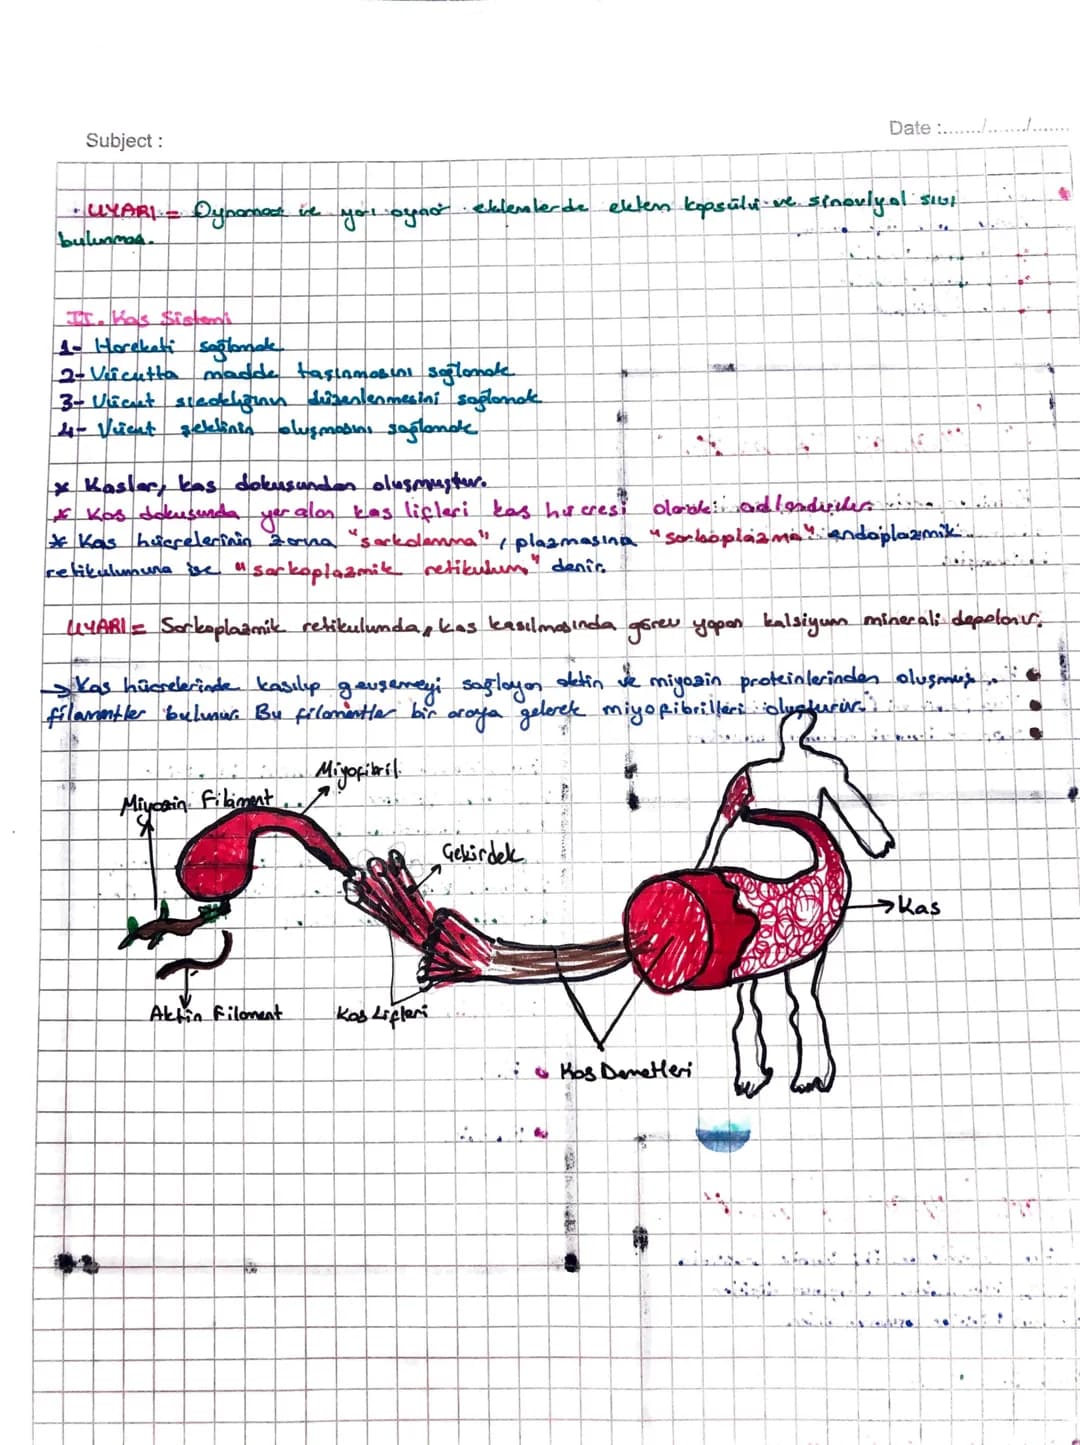 Subject :
Date :......../......../........
UYARI = Oynamaz ve yarı oynar eklemlerde eklem kapsülü ve sinoviyal sıvı
bulunmaz.
II. Kas Sistemi
1- Harekati sağlamak
2- Vücutta madde taşınmasını sağlamak
3- Vücut sıcaklığının düzenlenmesini sağlamak
4- Vücut şeklinin oluşmasını sağlamak
* Kaslar, kas dokusundan oluşmuştur.
* Kas dokusunda yer alan kas lifleri kas hücresi olarak adlandırılır
* Kas hücrelerinin zarına "sarkolemma", plazmasına "sarkoplazma" endoplazmik
retikulumuna ise "sarkoplazmik retikulum" denir.
UYARI = Sarkoplazmik retikulunda, kas kasılmasında görev yapan kalsiyum minerali depolanır.
→ Kas hücrelerinde kasılıp gevşemeyi sağlayan aktin ve miyozin proteinlerinden oluşmuş
filamentler bulunur. Bu filamentler bir araya gelerek miyofibrilleri oluşturur.
Miyofibril
Miyozin Filament
Çekirdek
Kas
Aktin Filament
Kas Lifleri
Kas Demetleri